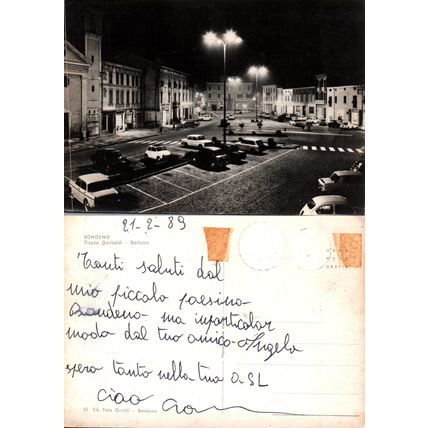 21-2-89
BONDENO
Piazza Garibaldi - Notturno
VERA
FOTO
GRAFIA
Tanti saluti dal
mio piccolo paesino
Bondeno ma inparticolar
modo dal tuo amico Angelo
spero tanto nella tua
ciao
Ed. Foto Grechi - Bondeno